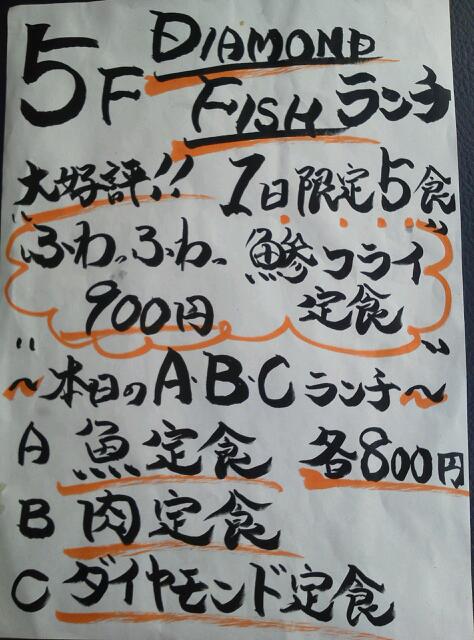 5F DIAMOND
FISH ランチ
大好評!! 1日限定5食
"ふわっふわっ 鯵フライ
900円 定食"
~本日のA・B・Cランチ~
A 魚定食 各800円
B 肉定食
C ダイヤモンド定食